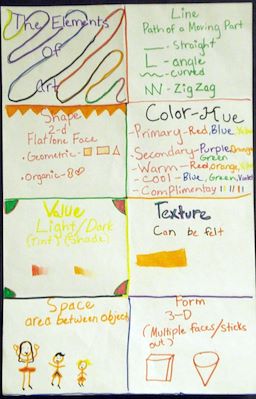 The Elements
Of
Art
Line
Path of a Moving Part
- straight
- angle
- curved
- Zig Zag
Shape
2-d
Flat/one Face
• Geometric-
• Organic-
Color-Hue
-Primary-Red, Blue, Yellow
-Secondary-Purple, Orange
Green
-Warm-Red, orange,
-Cool-Blue, Green, Violet
-Complimentay
Value
Light/Dark
(Tint) (Shade)
Texture
Can be felt
Space
area between object
Form
3-D
(Multiple faces/sticks
out)